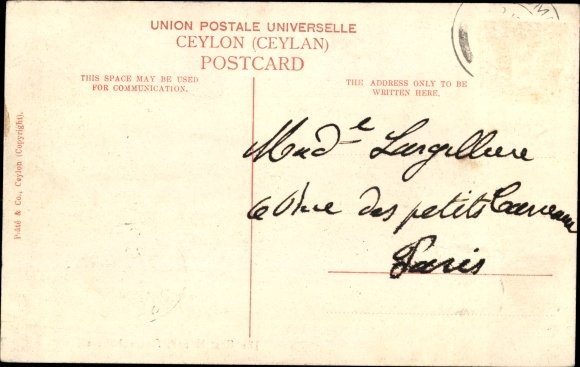 UNION POSTALE UNIVERSELLE
CEYLON (CEYLAN)
POSTCARD
THIS SPACE MAY BE USED
FOR COMMUNICATION.
THE ADDRESS ONLY TO BE
WRITTEN HERE.
Plâté & Co., Ceylon (Copyright).
Mad^le
rue des petits
Paris